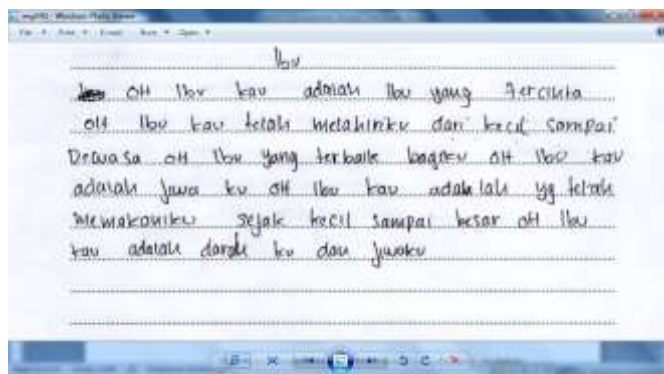 Ibu
OH Ibu kau adalah Ibu yang tercinta
OH Ibu kau telah melahirku dari kecil sampai
Dewasa OH Ibu yang terbaik bagku OH Ibu kau
adalah jiwa ku OH Ibu kau adalah yg telah
memakaniku sejak kecil sampai besar OH Ibu
kau adalah darah ku dan jiwaku